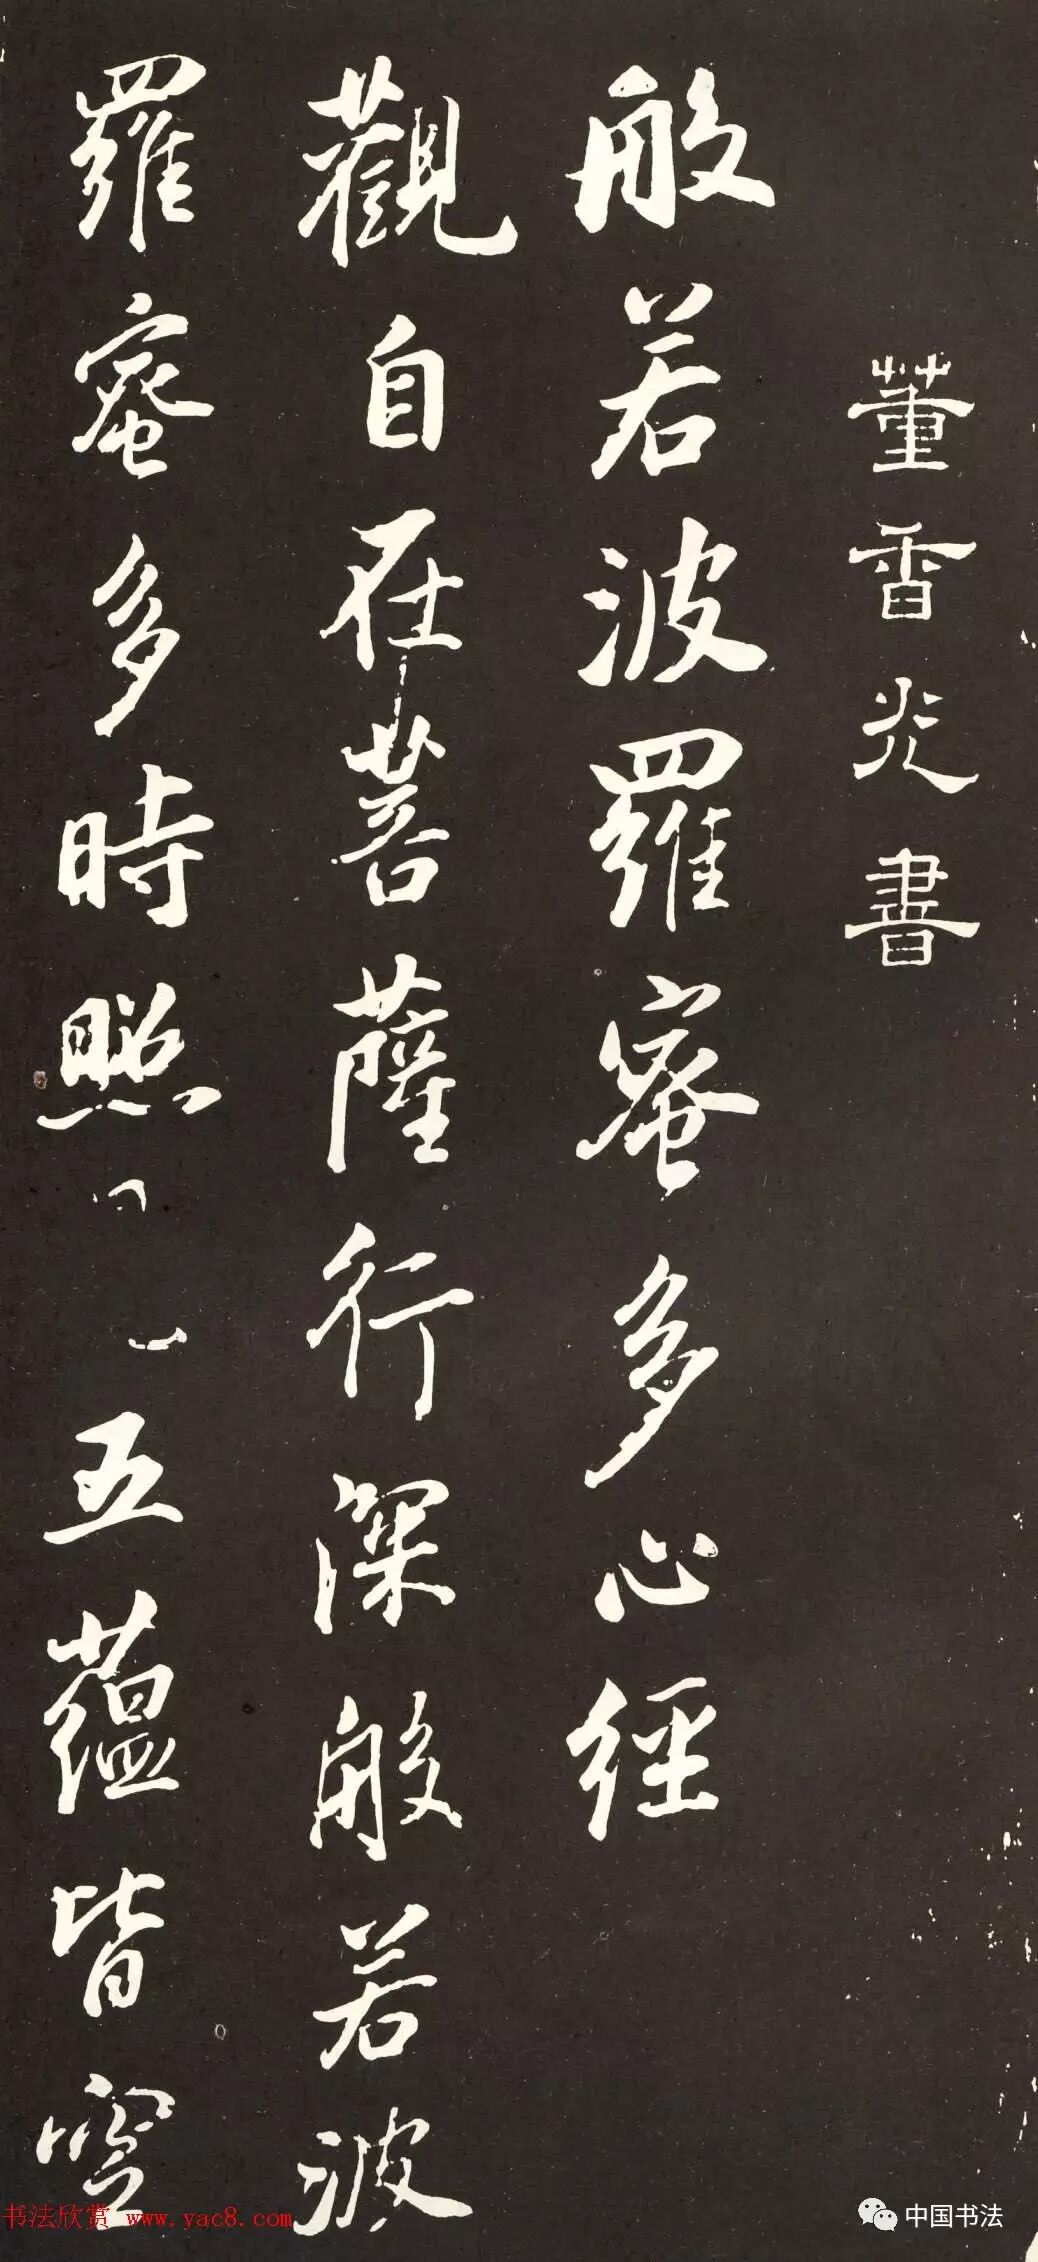 董香光書
般若波羅蜜多心經
觀自在菩薩行深般若波
羅蜜多時照五蘊皆空
书法欣赏 www.yac8.com
中国书法